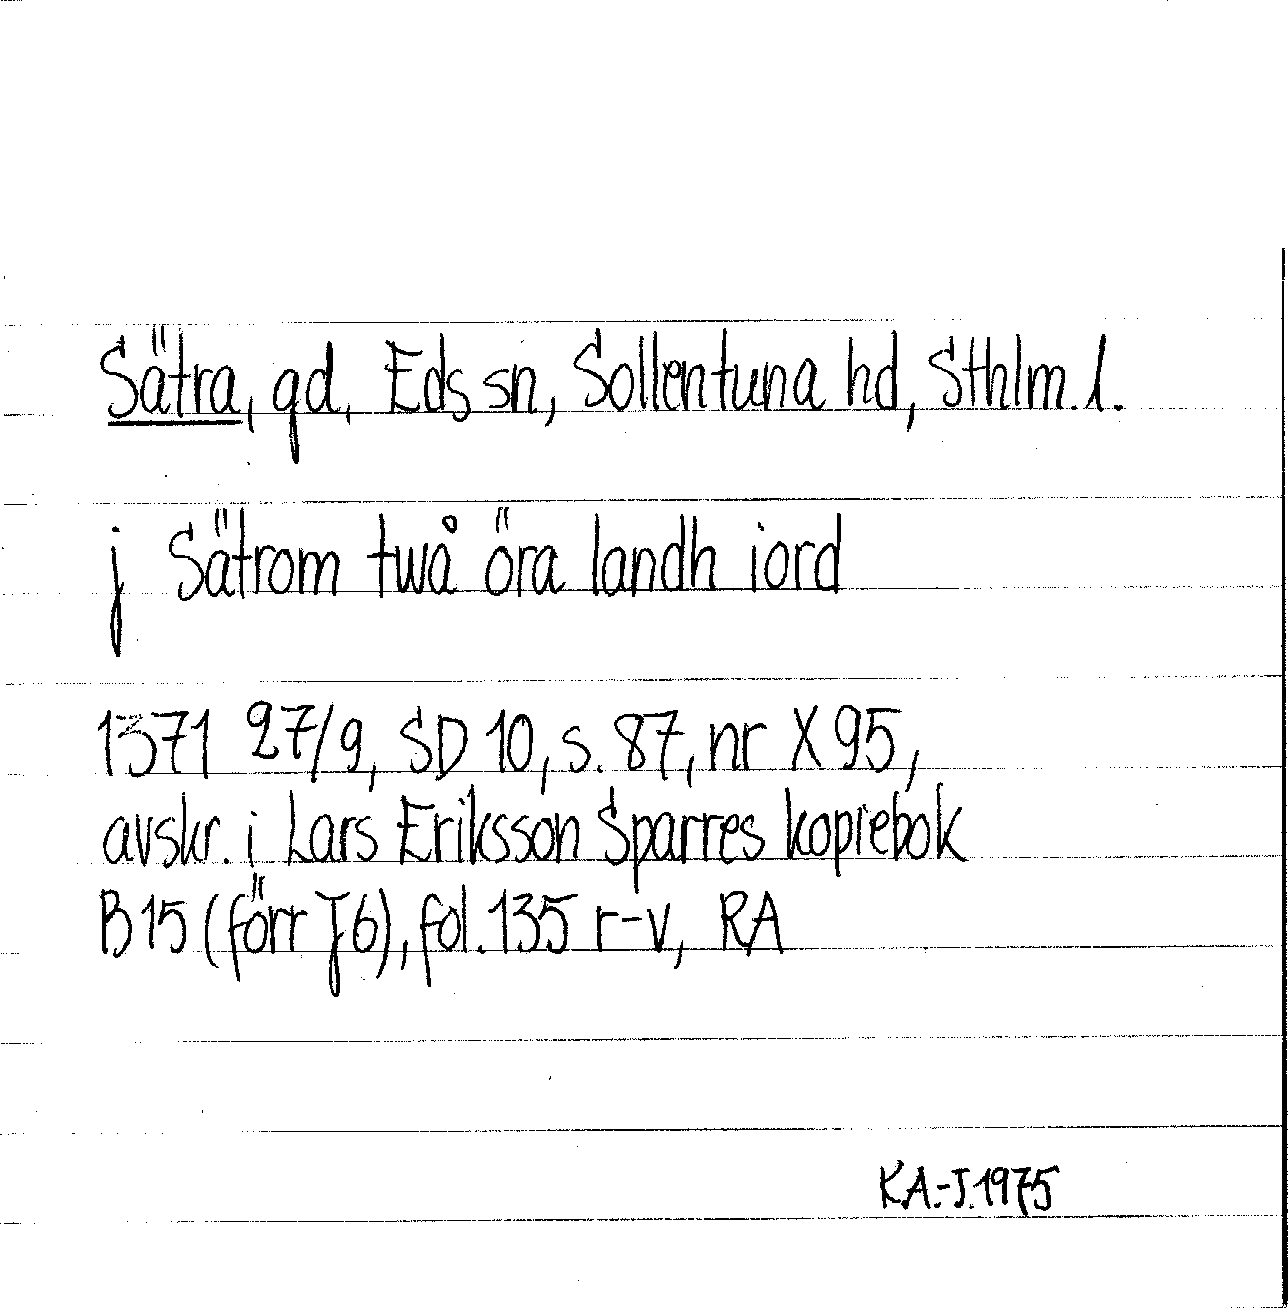 Sätra, gd, Eds sn, Sollentuna hd, Sthlm. l.
j Sätrom twå öra landh iord
1371 27/9, SD 10, s. 87, nr X 95,
avskr. i Lars Eriksson Sparres kopiebok
B 15 (förr J 6), fol. 135 r-v, RA
K.A.-J. 1975